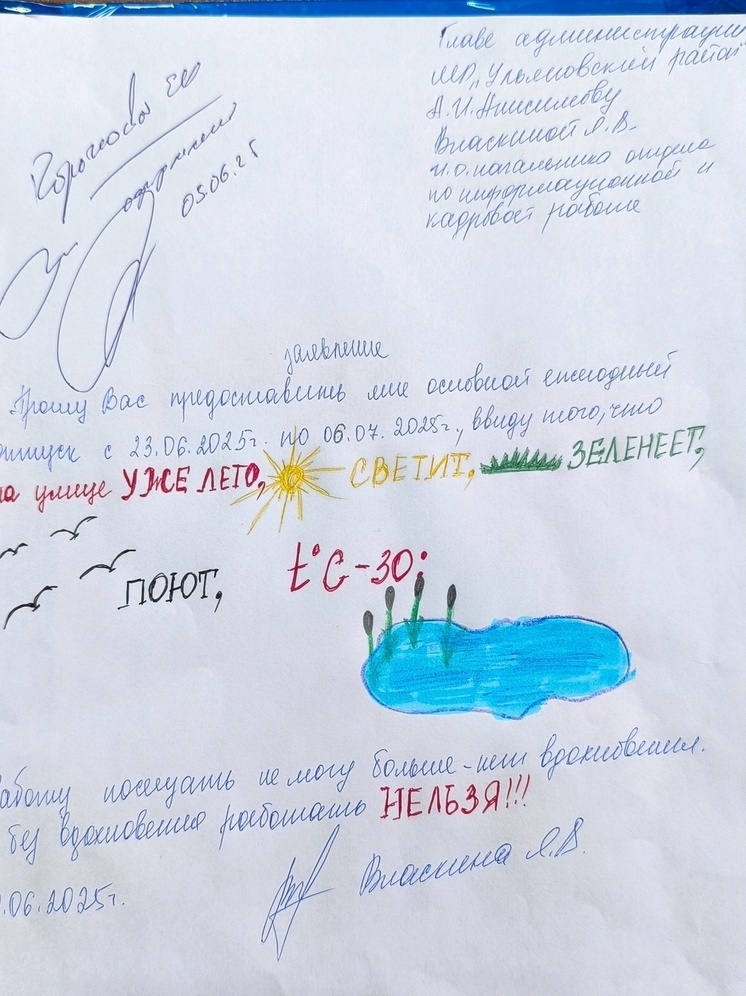 Главе администрации
МР „Ульяновский район"
А.И.Анисимову
Власкиной Я.В.
и.о.начальника отдела
по информационной и
кадровой работе
05.06.25
заявление
Прошу Вас предоставить мне основной ежегодный
отпуск с 23.06.2025г. по 06.07.2025г., ввиду того, что
на улице УЖЕ ЛЕТО, СВЕТИТ, ЗЕЛЕНЕЕТ,
ПОЮТ, t°C-30:
работу посещать не могу больше-нет вдохновения.
без вдохновения работать НЕЛЬЗЯ!!!
.06.2025г. Власкина Я.В.